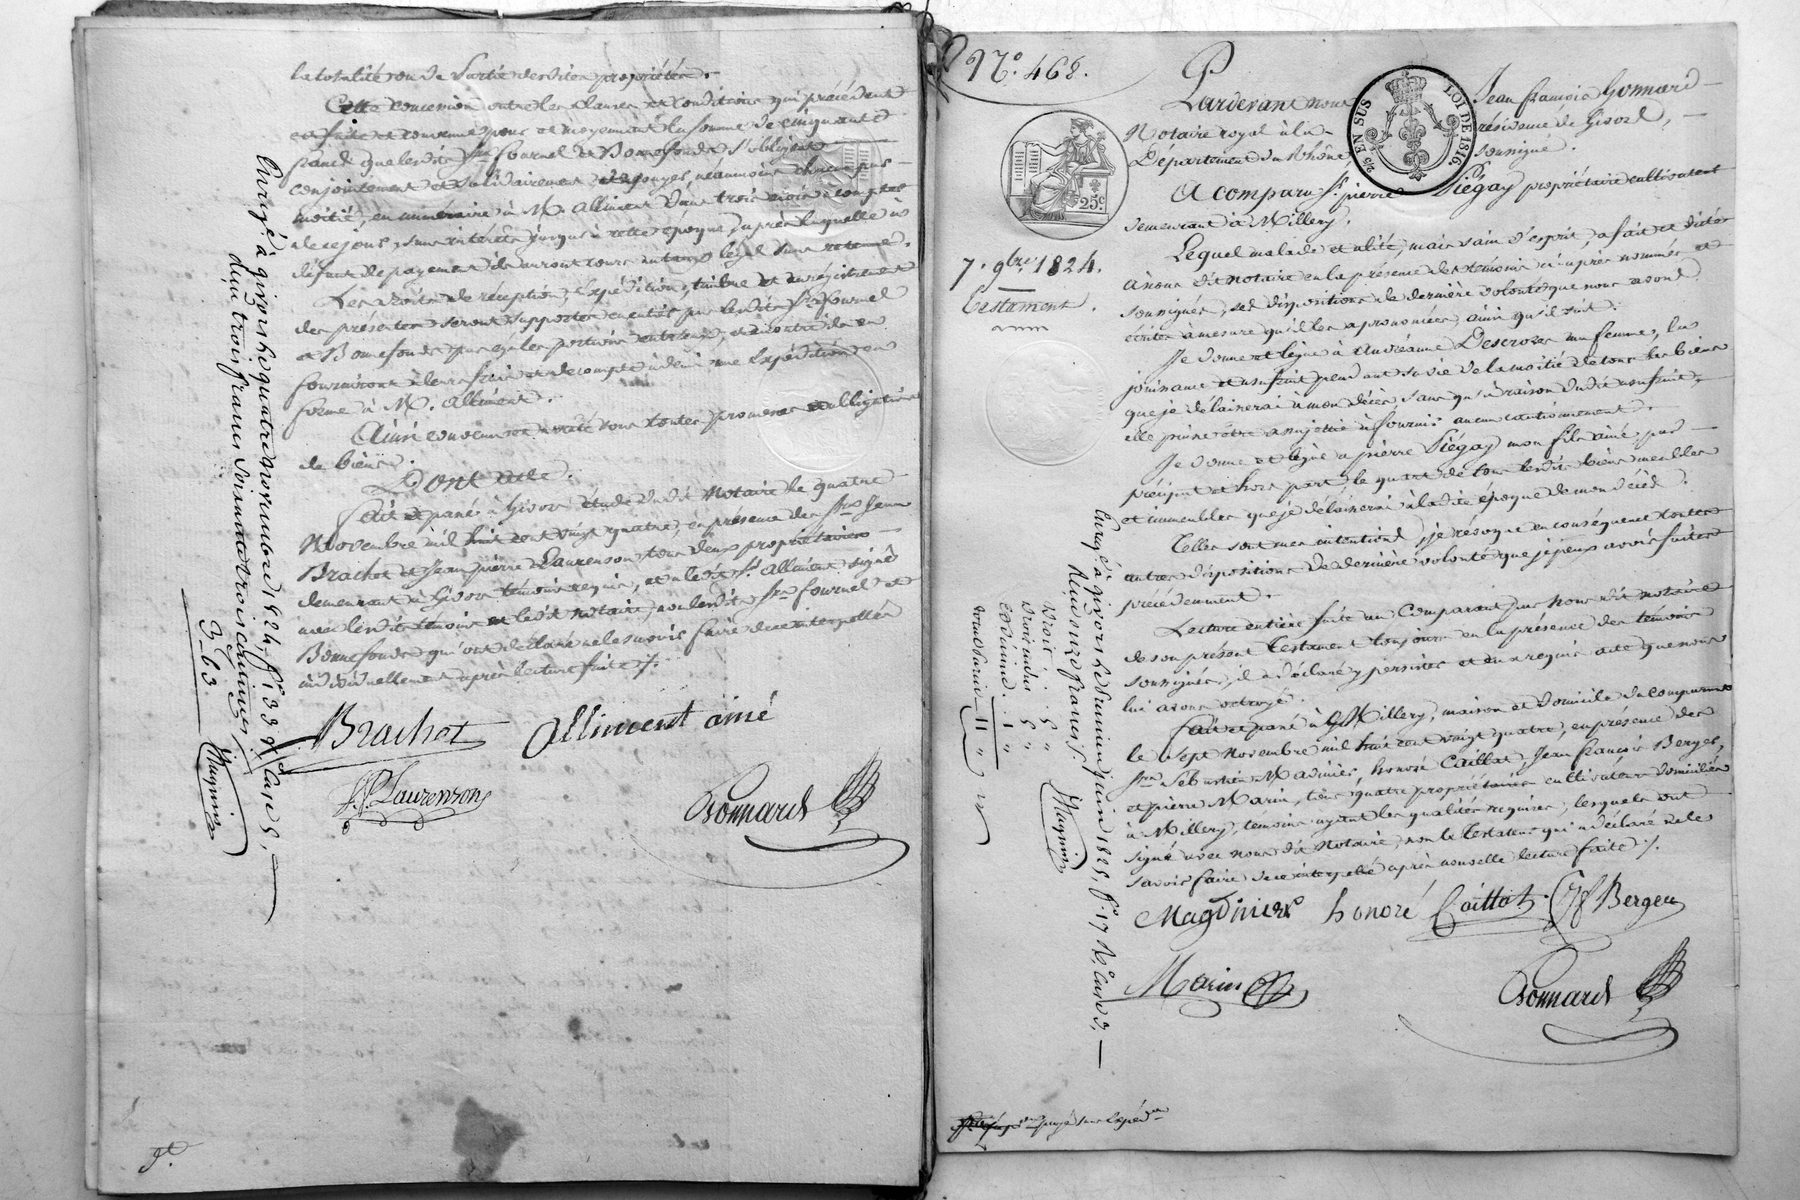 la totalité ou de partie desdites propriétés.
Cette concession outre les clauses et conditions qui précèdent
est faite et convenue pour et moyennant la somme de cinquante
francs que lesdits Srs fournel et Bonnefonds s'obligent
conjointement et solidairement
moitié, en numéraire à M. Alliment dans trois mois à compter
de ce jour, sans intérêts jusqu'à cette époque, après laquelle à
défaut de payement ils auront cours au taux légal sans retenue.
Les droits de réception, expédition, timbre et enregistrement
des présentes seront supportés en entier par lesdits Srs fournel
et Bonnefonds par égales portions entr'eux, et en outre ils en
fourniront à leurs frais et une expédition en
forme à M. Alliment.
Ainsi convenu et arrêté sous toutes promesses et obligations
de biens.
Dont acte.
Fait et passé à Givors étude dudit notaire le quatre
Novembre mil huit cent vingt quatre, en présence des Srs Jean
Brachet et Jean pierre Laurenson tous deux propriétaires
demeurant à Givors témoins requis, et a ledit Sr. Alliment signé
avec lesdits témoins et ledit notaire, non lesdits Srs fournel et
Bonnefonds qui ont déclaré ne le savoir faire de ce interpellés
individuellement après lecture faite ./.
Brachet Alliment ainé
J.P. Laurenson
Gonnard
Enregé. à givors le quatre novembre 1824, fo. 33 Vo. Case 5,
Reçu trois francs soixante trois centimes
3-63
Magnin
No. 468.
25c.
2/0 EN SUS
LOI DE 1816.
7. 9bre 1824.
Testament.
Pardevant nous Jean françois Gonnard
Notaire royal à la résidence de Givors,
Département du Rhône soussigné.
A comparu Sr. pierre Piégay propriétaire cultivateur
demeurant à Millery.
Lequel malade et alité, mais sain d'esprit, a fait et dicté
à nous dit notaire en la présence des témoins ci-après nommés et
soussignés, ses dispositions de dernière volonté que nous avons
écrites à mesure qu'il les a prononcées, ainsi qu'il suit.
Je donne et lègue à Andréanne Descroze ma femme, la
jouissance et usufruit pendant sa vie de la moitié de tous les biens
que je délaisserai à mon décès, sans qu'à raison dudit usufruit,
elle puisse être assujettie à fournir aucun cautionnement.
Je donne et lègue à pierre Piégay mon fils ainé, par
préciput et hors part, le quart de tous lesdits biens meubles
et immeubles que je délaisserai à ladite époque de mon décès.
Telles sont mes intentions, je révoque en conséquence toutes
autres dispositions de dernière volonté que je peux avoir faites
précédemment.
Lecture entière faite au Comparant par Nous dit notaire
de son présent testament toujours en la présence des témoins
soussignés, il a déclaré y persister et en a requis acte que nous
lui avons octroyé.
Fait et passé à Millery, maison et domicile du comparant
le sept Novembre mil huit cent vingt quatre, en présence des
Srs Sébastien Madinier, honoré Caillat, Jean françois Berger,
et pierre Marin, tous quatre propriétaires cultivateurs domiciliés
à Millery, témoins ayant les qualités requises, lesquels ont
signé avec nous dit Notaire, non le testateur qui a déclaré ne le
savoir faire de ce interpellé après nouvelle lecture faite ./.
Magdinier honoré Caillat. Jf Berger
Marin
Gonnard
Enregé à givors le premier juin 1825, fo. 17 Vo. Case 3,
Reçu onze francs
Magnin
5 "
5 "
1 "
11 "